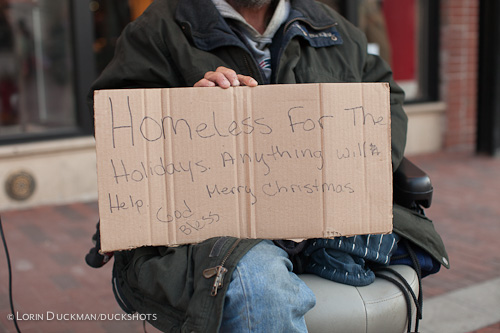 Homeless For The
Holidays. Anything will
Help God Merry Christmas
Bless
© LORIN DUCKMAN/DUCKSHOTS